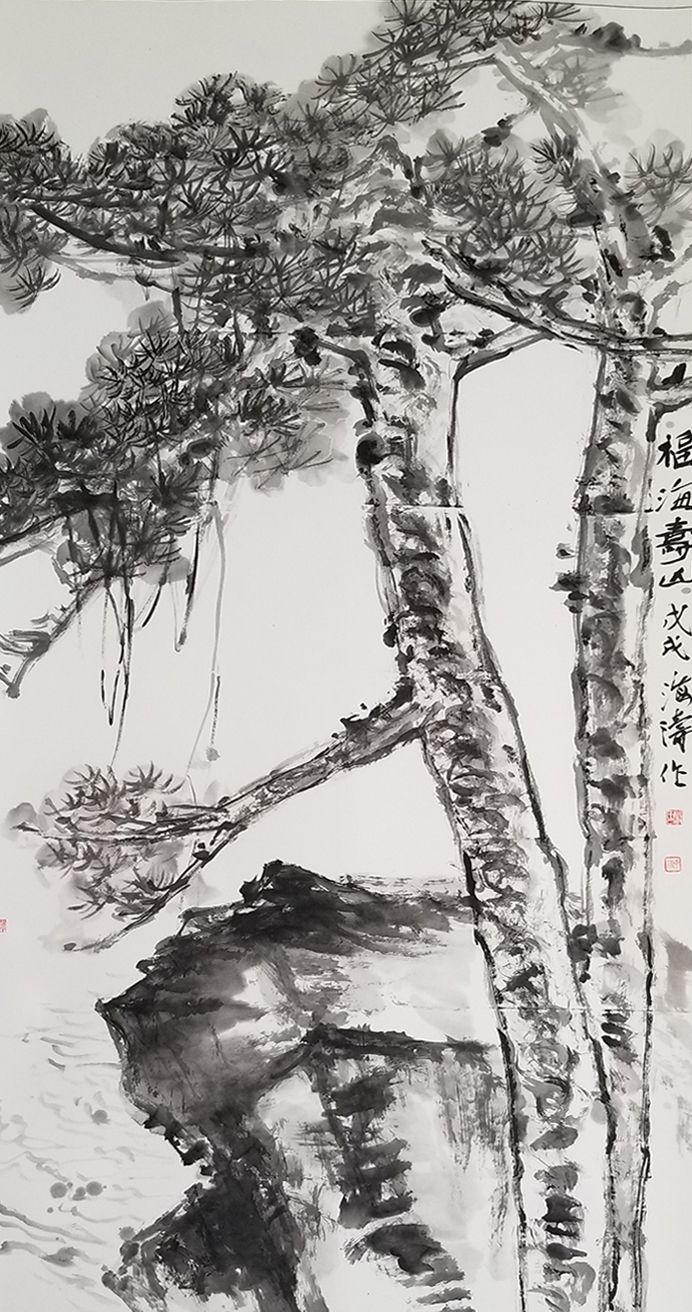 福海壽山 戊戌 海濤作